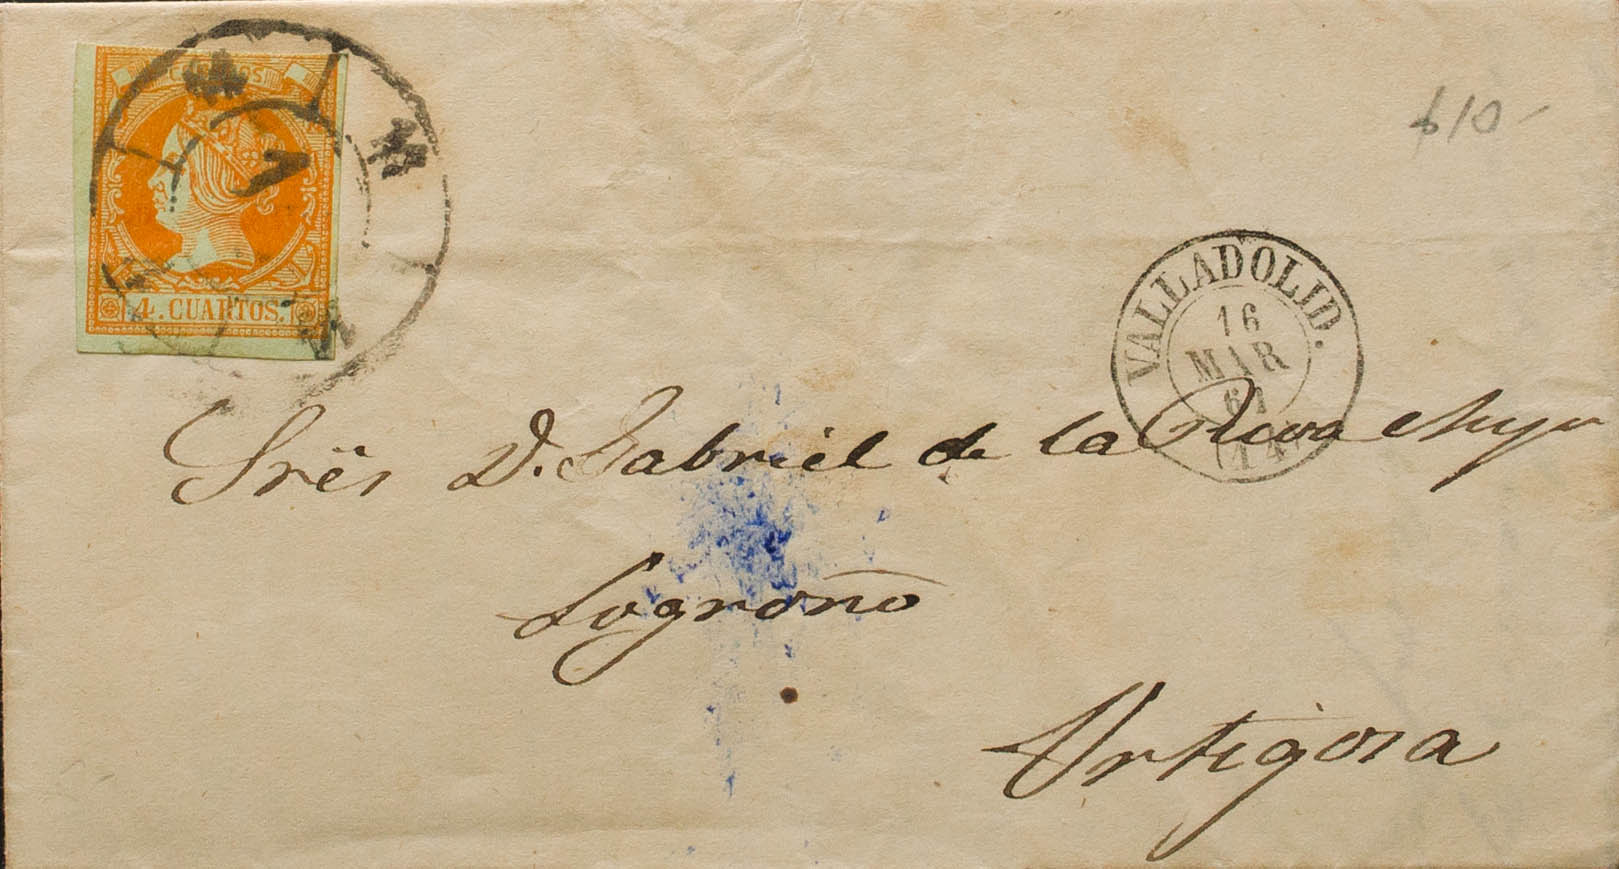 CORREOS
4. CUARTOS.
1
$10-
VALLADOLID.
16
MAR
61
Srës D. Gabriel de la Riva
Logroño
Ortigosa